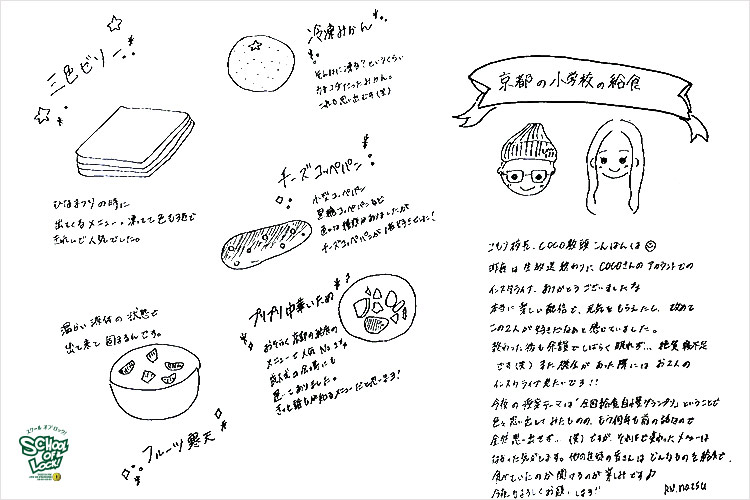 三色ゼリー
ひなまつりの時に
出てくるメニュー。凍ってて色も3色で
きれいで人気でした。
冷凍みかん
そんなに凍る?というくらい
カチコチだったみかん。
これも思い出です(笑)
チーズコッペパン
小型コッペパン
黒糖コッペパンなど
色々な種類がありましたが
チーズコッペパンが1番好きでした!
プリプリ中華いため
おそらく京都の給食の
メニューで人気No.1です。
きっと誰もが好きなメニューだと思います!
温かい液体の状態で
出て来て固まるんです。
フルーツ寒天
京都の小学校の給食
こもり校長、COCO教頭こんばんは
昨日は生放送終わりに、COCOさんのアカウントでの
インスタライブ、ありがとうございました
本当に楽しい配信で、元気をもらえたし、改めて
この2人が好きだなぁと感じていました。
終わった後も余韻でしばらく眠れず... 睡眠不足
です(笑) また機会があった際には お2人の
インスタライブ見たいです!!
今夜の授業テーマは「全国給食自慢グランプリ」ということで
色々思い出してみたものの、もう何年も前の話なので
全然思い出せず...(笑)ですが、それほど変わったメニューは
なかった気がします。他の生徒の皆さんはどんなものを給食で
食べていたのか聞けるのが楽しみです♪
今夜もよろしくお願いします!!
スクール オブ ロック!
SCHOOL
OF
LOCK!